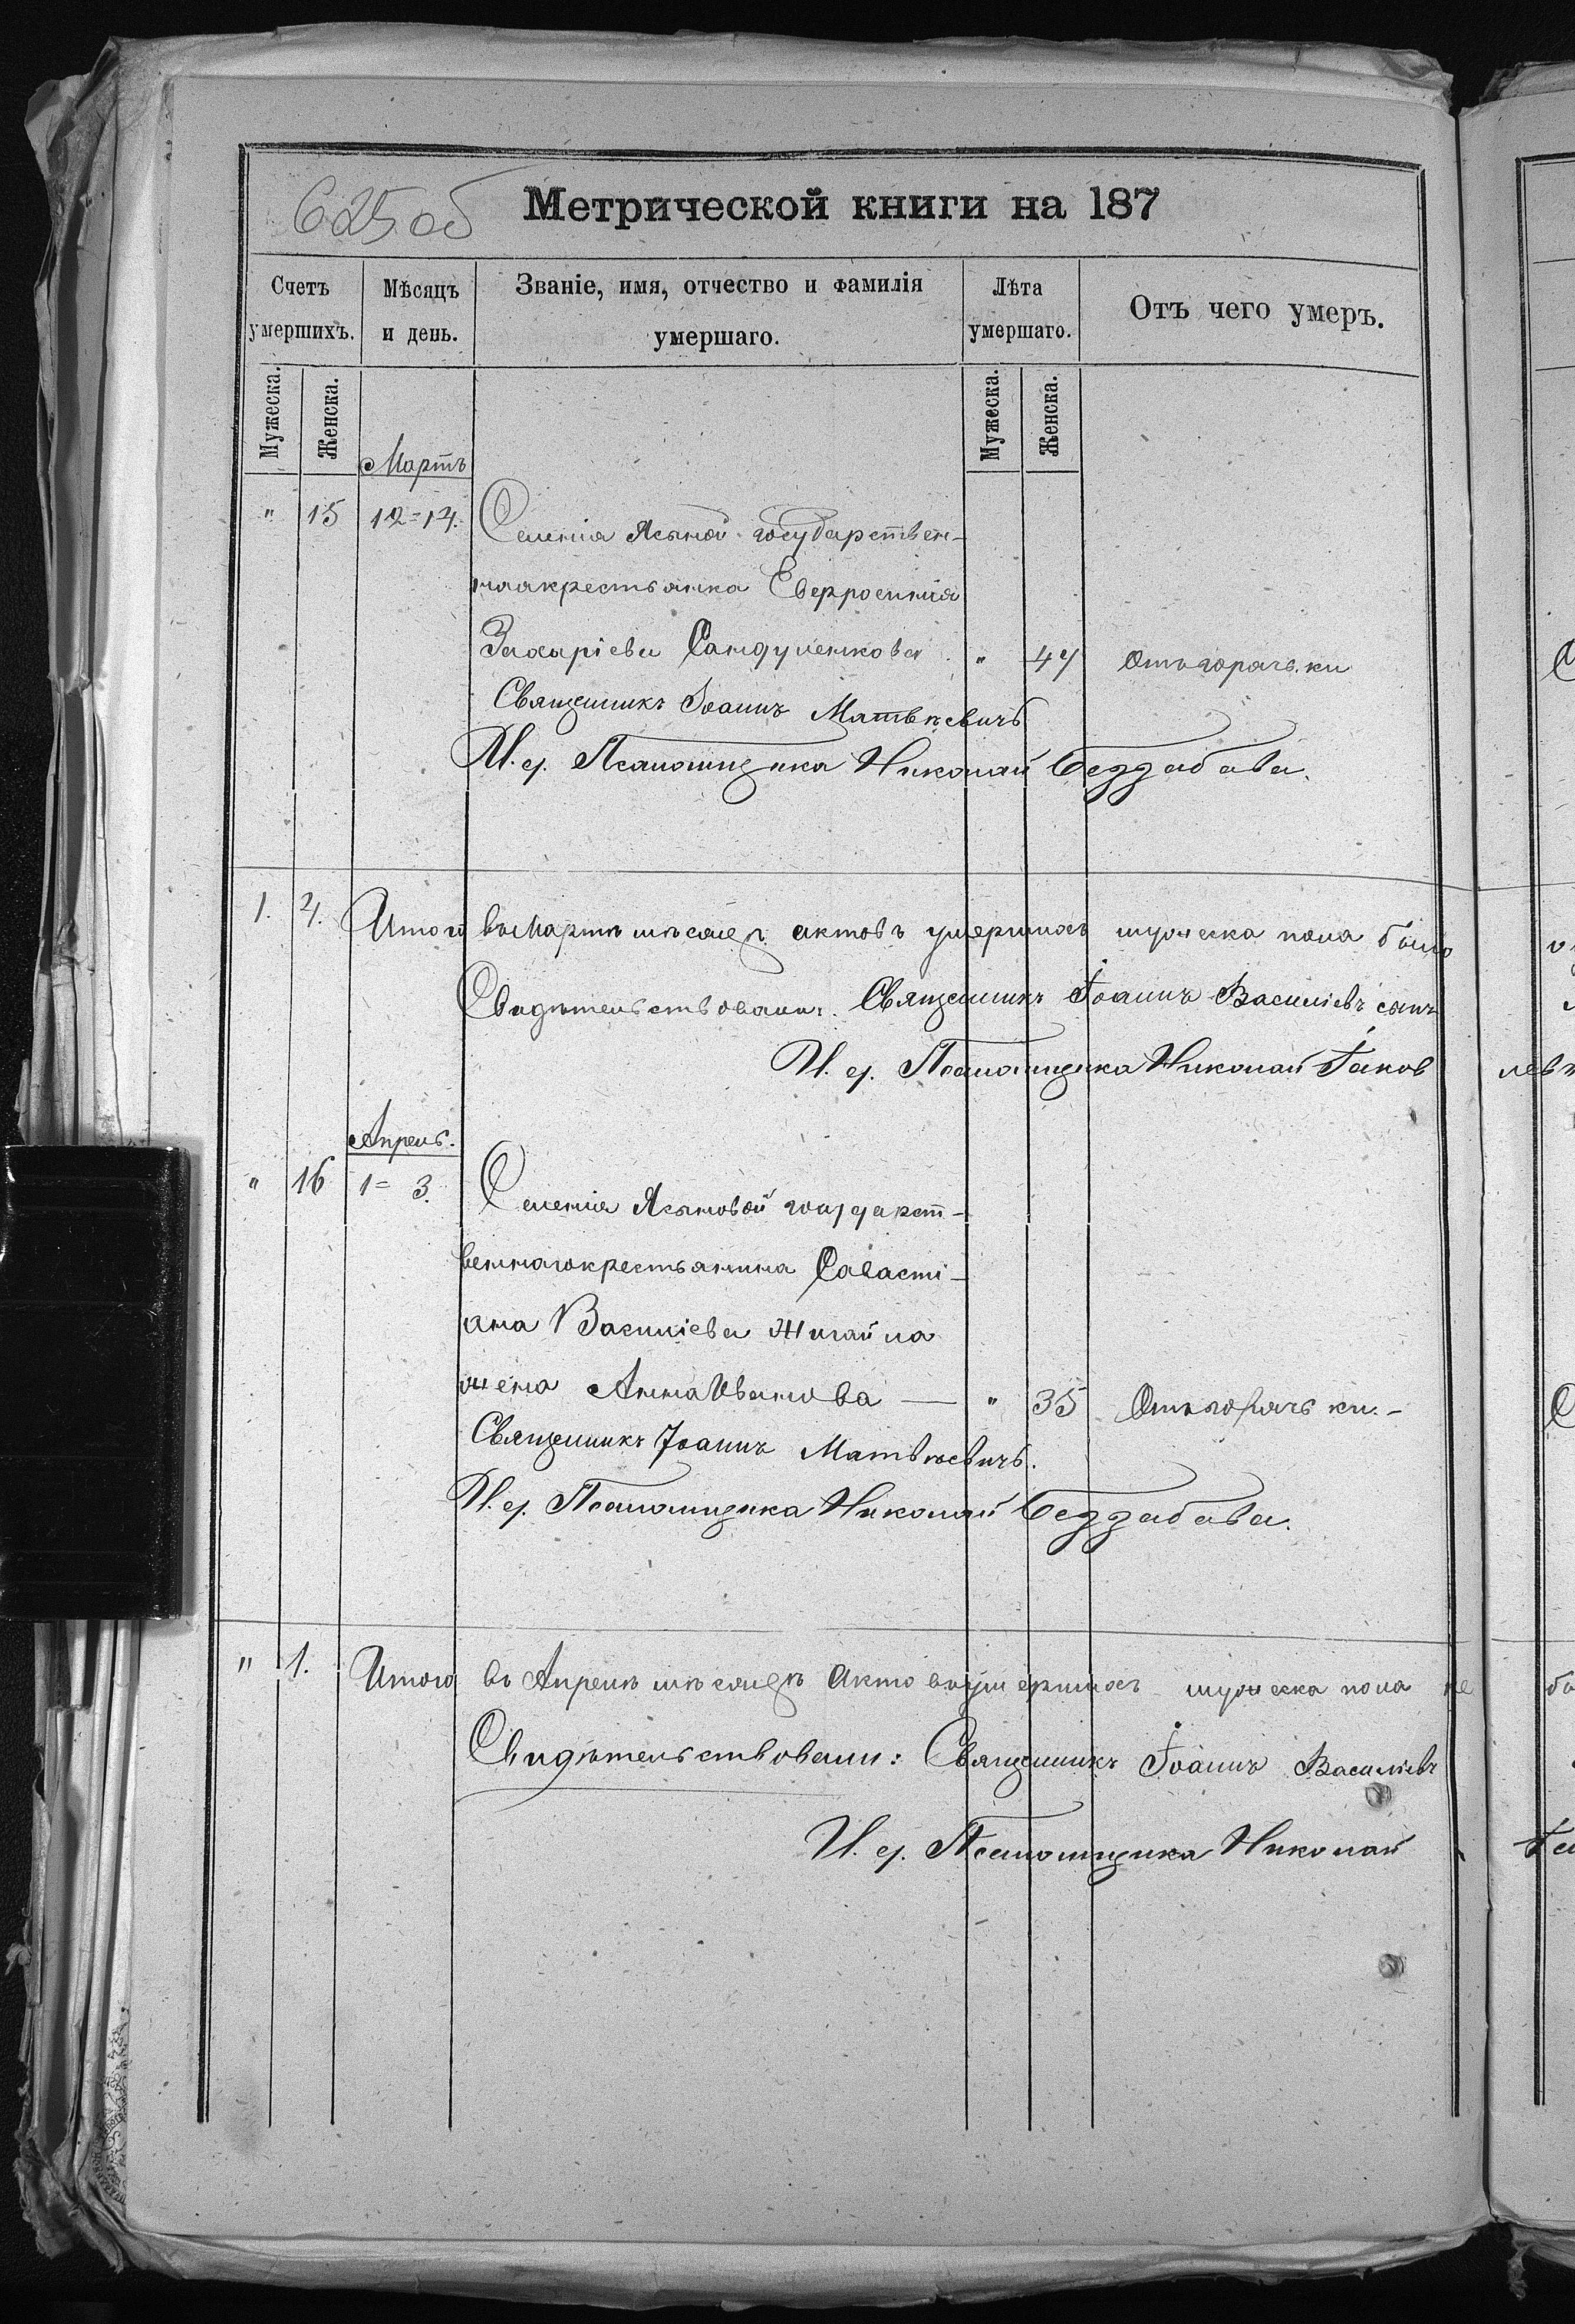 625 об Метрической книги на 187
Счетъ умершихъ. Мѣсяцъ и день. Званіе, имя, отчество и фамилія умершаго. Лѣта умершаго. Отъ чего умеръ.
Мужеска. Женска. Мужеска. Женска.
Мартъ
" 15 12=14. Селенія Ясыной государствен-
наякрестьянка Евфросинія
Захаріева Сандуленкова " 47 Отъ горячьки
Священникъ Іоаннъ Матвѣевичъ
И. д. Псаломщика Николай Беззабава.
1. 4. Итого въ Мартѣ мѣсяцѣ актовъ умершихъ мужеска пола было
Свидѣтельствовали: Священникъ Іоаннъ Василіевъ сынъ
И. д. Псаломщика Николай Іаков
Апрель.
" 16 1= 3. Селенія Ясыновой государст-
веннагокрестьянина Саваcті-
ана Василіева Жигайла
жена АннаИванова — " 35 Отъ горячьки.-
Священникъ Іоаннъ Матвѣевичъ.
И. д. Псаломщика Николай Беззабава.
" 1. Итого въ Апрелѣ мѣсяцѣ Актовъ умершихъ мужеска пола не
Свидѣтельствовали: Священникъ Іоаннъ Василіевъ
И. д. Псаломщика Николай